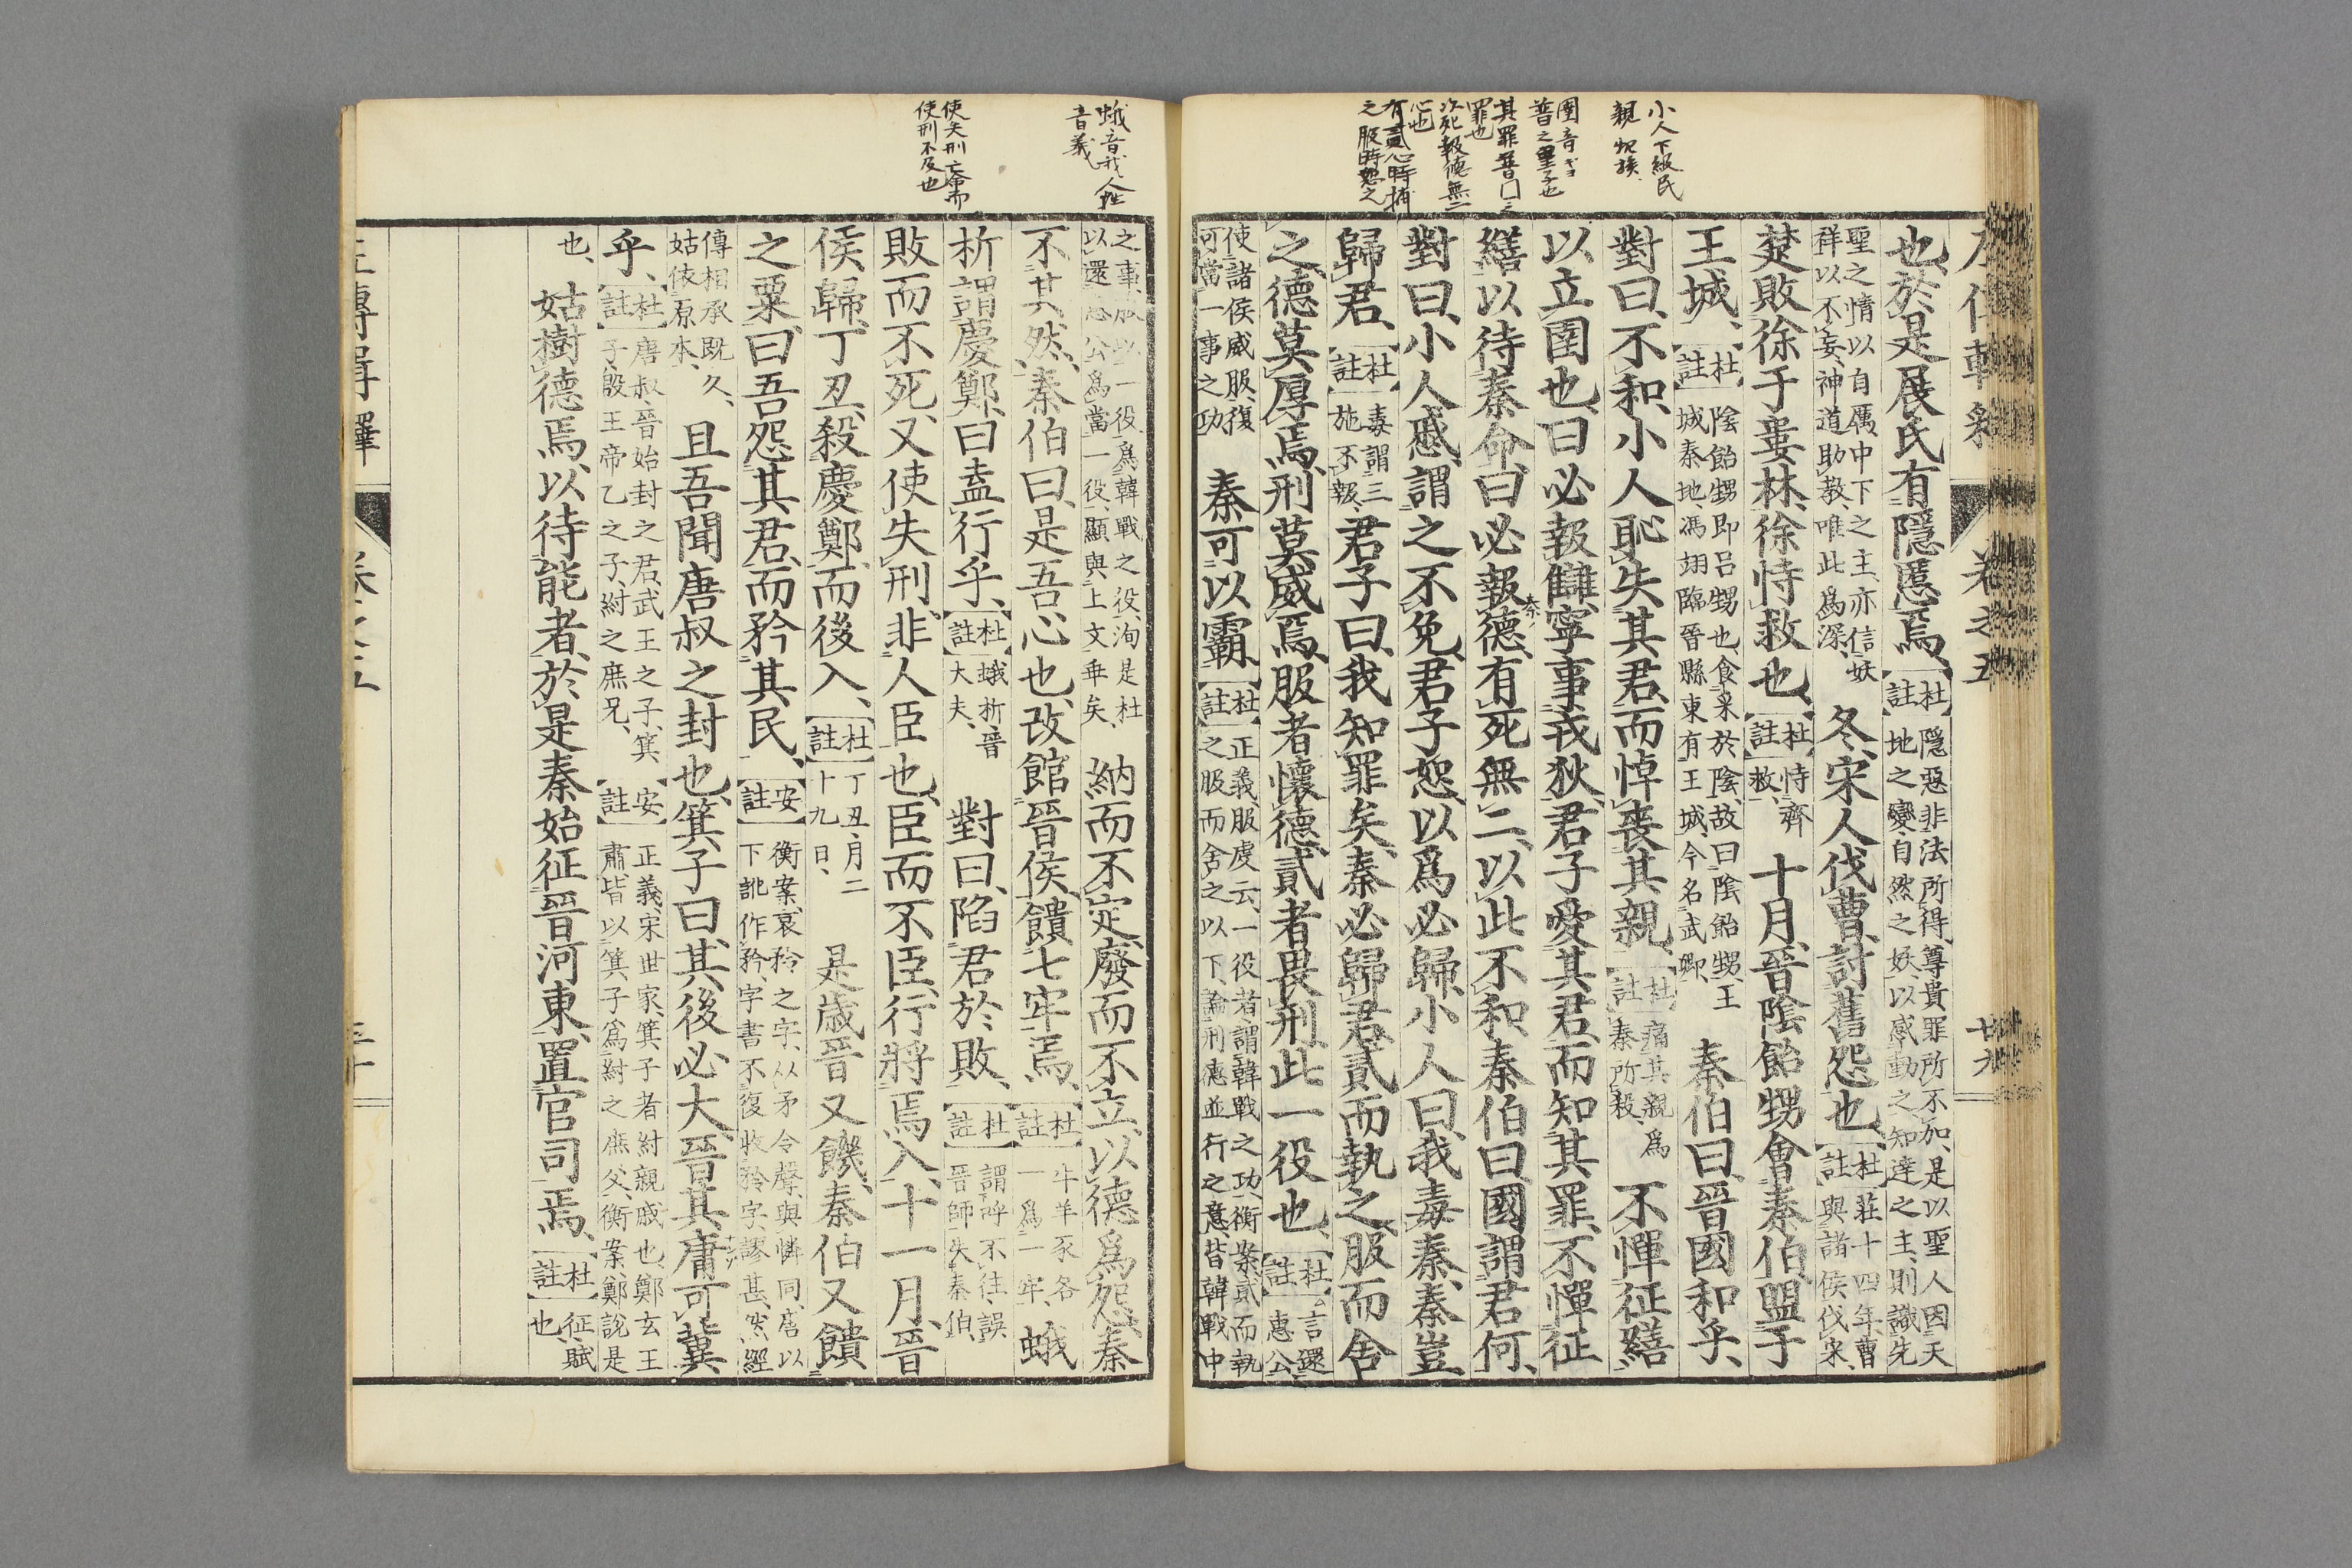 小人下級民
親 親族
圉音ギョ
晉之聖子也
其罪晉口之
罪也
次死報德無二
心也
有貳心時捕
之服時恕之
卷之五
廿九
也、於是展氏有隱慝焉、【杜註】隱惡非法所得、尊貴罪所不加、是以聖人因天地之變、自然之妖、以感動之、知達之主、則識先
聖之情以自厲、中下之主、亦信妖祥以不妄、神道助教、唯此爲深、冬、宋人伐曹、討舊怨也、【杜註】莊十四年、曹與諸侯伐宋、
楚敗徐于婁林、徐恃救也、【杜註】恃齊救、十月、晉陰飴甥會秦伯、盟于
王城、【杜註】陰飴甥即呂甥也、食采於陰、故曰陰飴甥、王城秦地、馮翊臨晉縣東有王城、今名武鄉、秦伯曰、晉國和乎、
對曰、不和、小人恥失其君、而悼喪其親、【杜註】痛其親爲秦所殺、不憚征繕
以立圉也、曰必報讎、寧事戎狄、君子愛其君、而知其罪、不憚征
繕以待秦命、曰必報德、有死無二、以此不和、秦伯曰、國謂君何、
對曰、小人慼、謂之不免、君子恕、以爲必歸、小人曰、我毒秦、秦豈
歸君、【杜註】毒謂三施不報、君子曰、我知罪矣、秦必歸君、貳而執之、服而舍
之、德莫厚焉、刑莫威焉、服者懷德、貳者畏刑、此一役也、【杜註】言還惠公、
使諸侯威服、復可當一事之功、秦可以霸、【杜註】正義、服虔云、一役者、謂韓戰之功、衡案、貳而執之、服而舍之以下、論刑德並行之意、皆韓戰中
蛾音我人姓
音義
使失刑亡命而
使刑不及也
之事、一役爲韓戰之役、洵是、杜以還惠公爲當一役、顯與上文乖矣、納而不定、廢而不立、以德爲怨、秦
不其然、秦伯曰、是吾心也、改館晉侯、饋七牢焉、【杜註】牛羊豕各一、爲一牢、蛾
析謂慶鄭、曰盍行乎、【杜註】蛾析晉大夫、對曰、陷君於敗、【杜註】謂呼不往、誤晉師、失秦伯、
敗而不死、又使失刑、非人臣也、臣而不臣、行將焉入、十一月、晉
侯歸、丁丑、殺慶鄭而後入、【杜註】丁丑、月二十九日、是歲晉又饑、秦伯又饋
之粟、曰吾怨其君、而矜其民、【安註】衡案、哀矜之字、从矛令聲、與憐同、唐以下訛作矜、字書不復收矜字、謬甚、然經
傳相承既久、姑依原本、且吾聞唐叔之封也、箕子曰、其後必大、晉其庸可冀
乎、【杜註】唐叔、晉始封之君、武王之子、箕子、殷王帝乙之子、紂之庶兄、【安註】正義、宋世家、箕子者紂親戚也、鄭玄王肅、皆以箕子爲紂之庶父、衡案、鄭說是
也、姑樹德焉、以待能者、於是秦始征晉河東、置官司焉、【杜註】征、賦也、